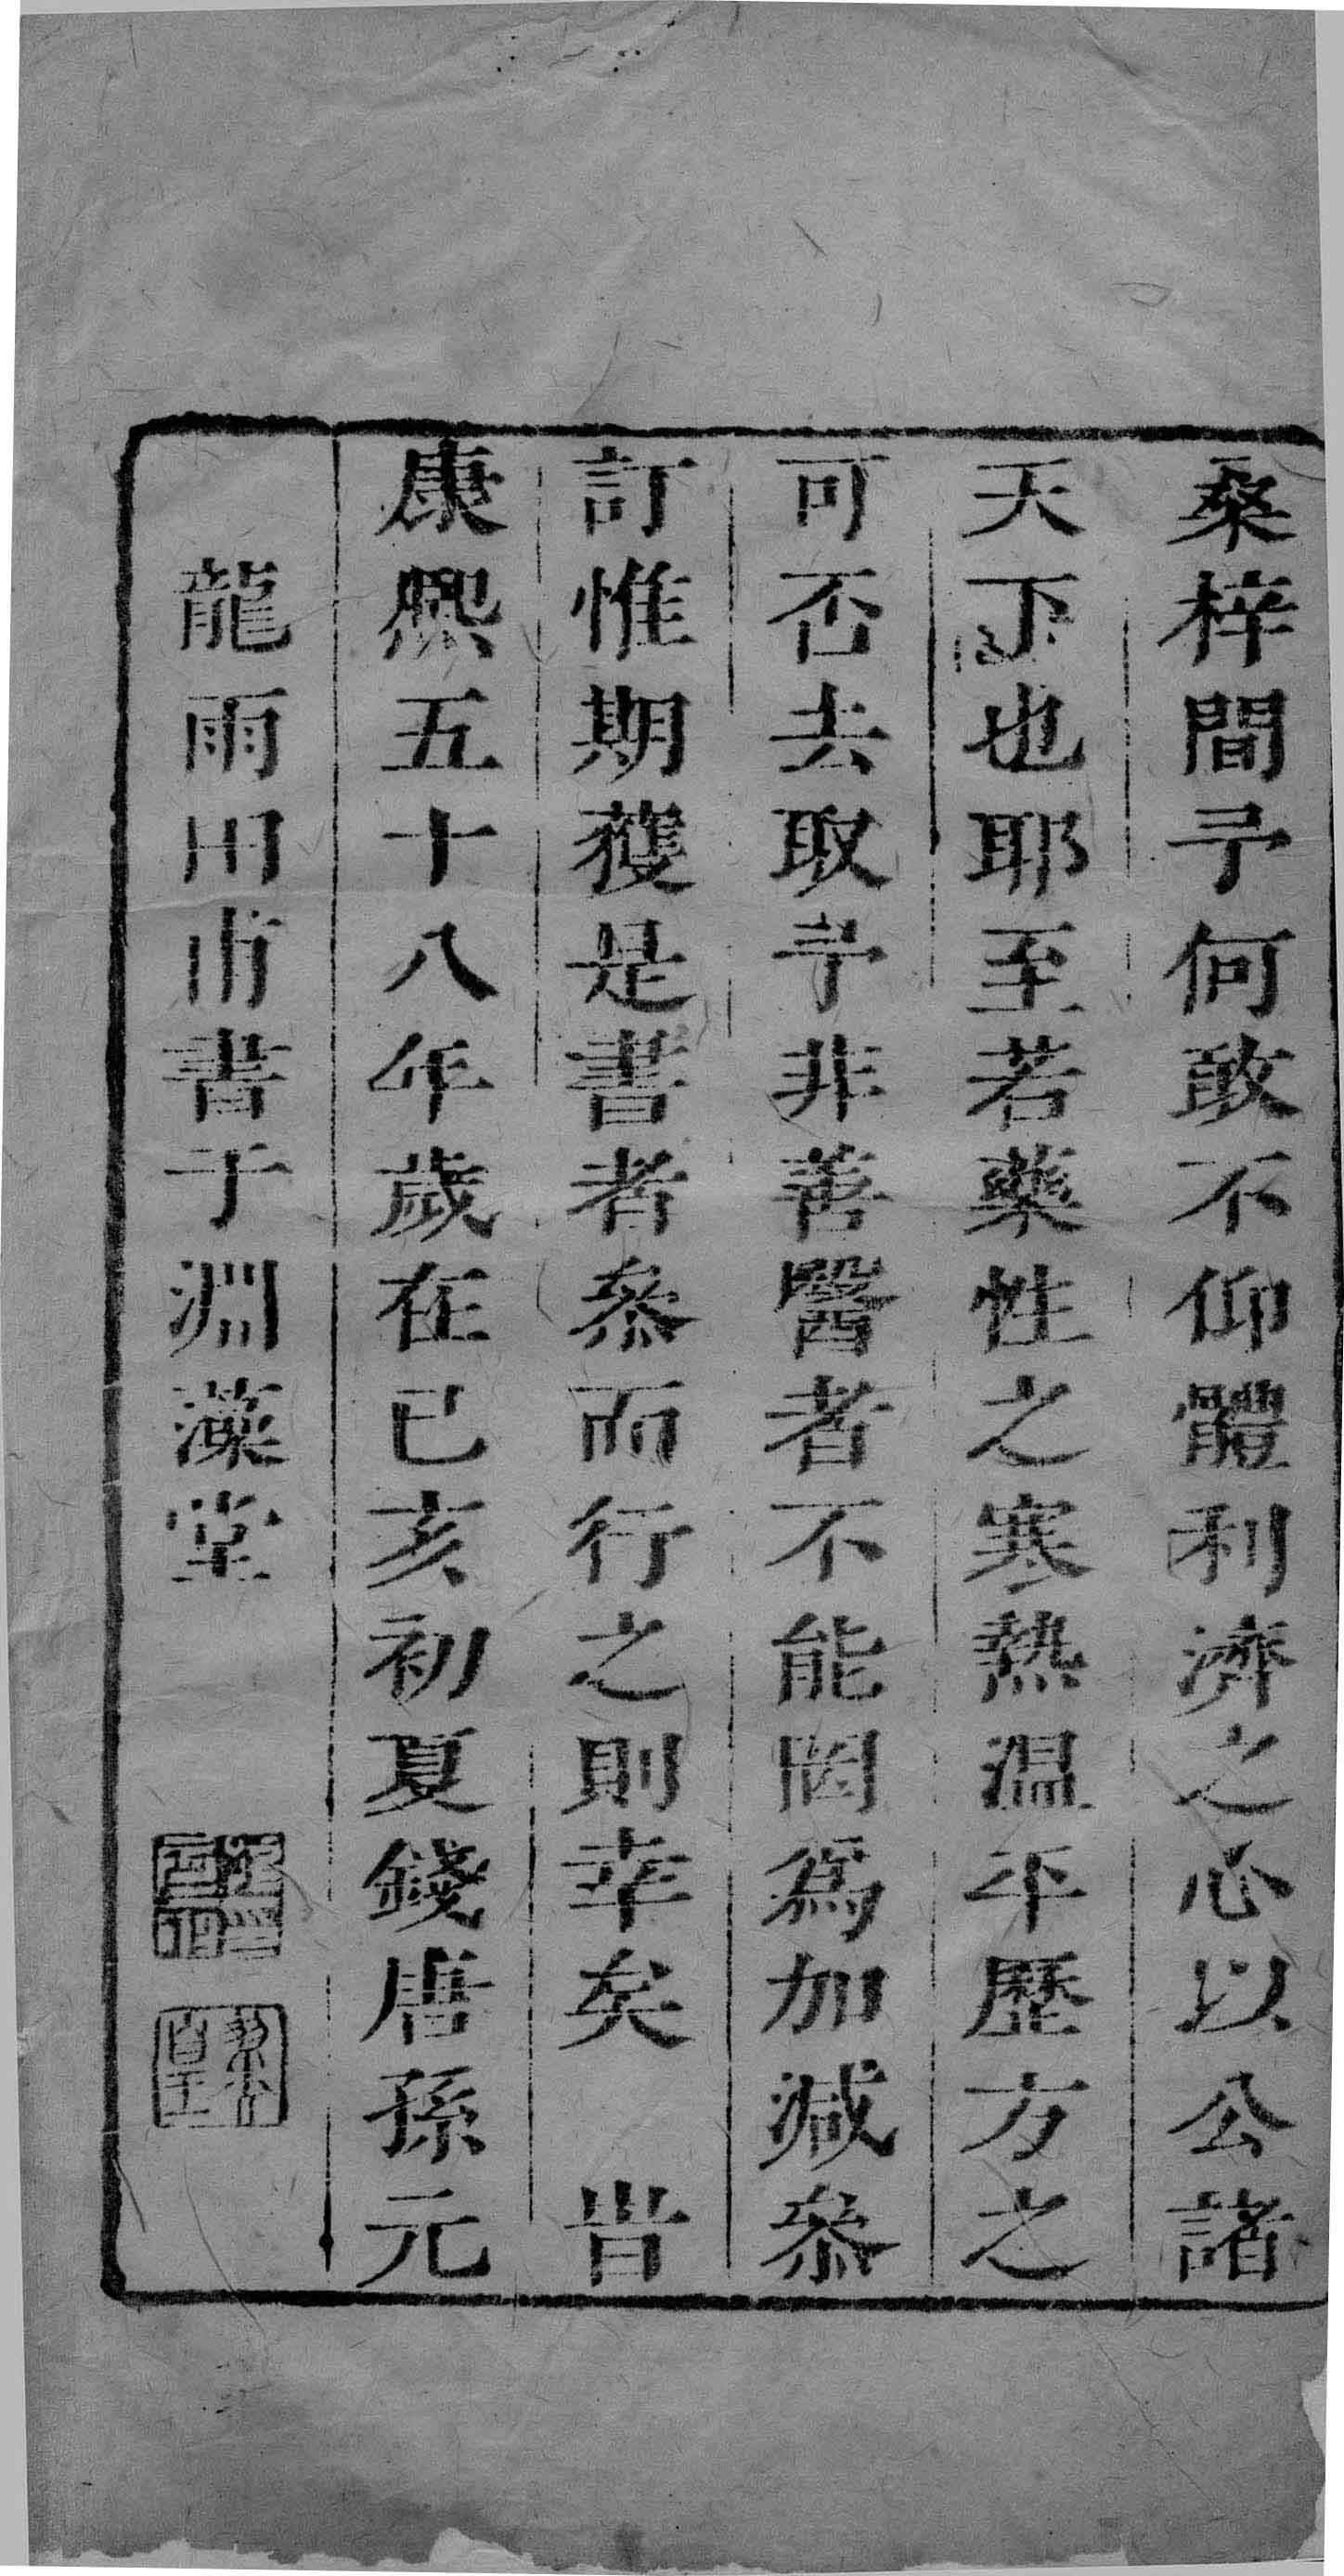 桑梓間予何敢不仰體利濟之心以公諸
天下也耶至若藥性之寒熱溫平歷方之
可否去取予非善醫者不能罔爲加減叅
訂惟期獲是書者叅而行之則幸矣　旹
康熙五十八年歲在已亥初夏錢唐孫元
龍雨田甫書于淵藻堂